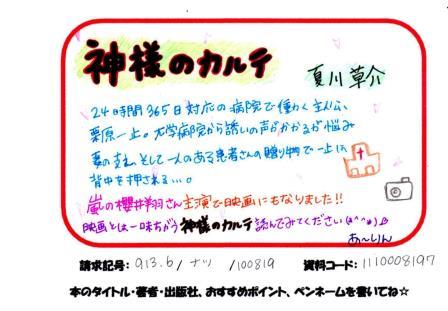 神様のカルテ 夏川草介
24時間365日対応の病院で働く主人公、
栗原一止。大学病院から誘いの声がかかるが悩み
妻の支え、そして一人のある患者さんの贈り物で一止は
背中を押される…。
嵐の櫻井翔さん主演で映画にもなりました!!
映画とは一味ちがう神様のカルテ読んでみてください(*^^*)
あ〜りん
請求記号: 913.6/ナツ/100819 資料コード: 1110008197
本のタイトル・著者・出版社、おすすめポイント、ペンネームを書いてね☆